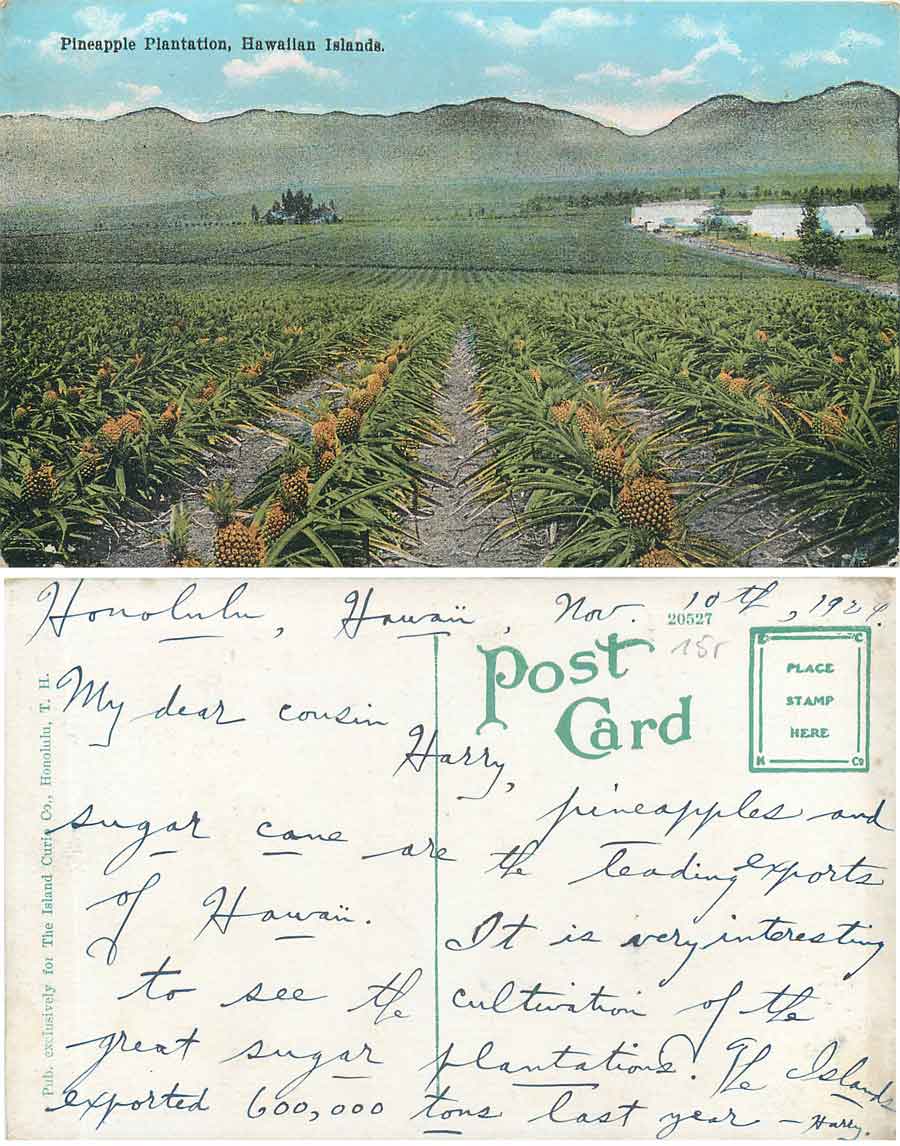 Pineapple Plantation, Hawaiian Islands.
Honolulu, Hawaii, Nov. 10th, 1924.
20527
15r
Post Card
PLACE
STAMP
HERE
E C
K Co
Pub. exclusively for The Island Curio Co., Honolulu, T. H.
My dear cousin
Harry,
pineapples and
sugar cane are the leading exports
of Hawaii. It is very interesting
to see the cultivation of the
great sugar plantations. The Islands
exported 600,000 tons last year — Harry.